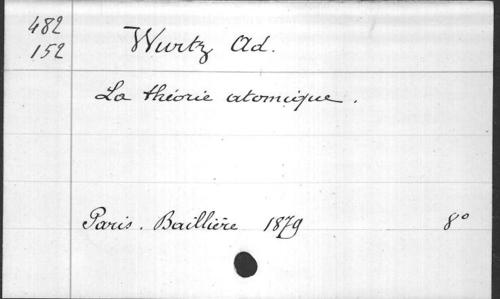 482
152
Wurtz Ad.
La théorie atomique.
Paris. Baillière 1879 8°